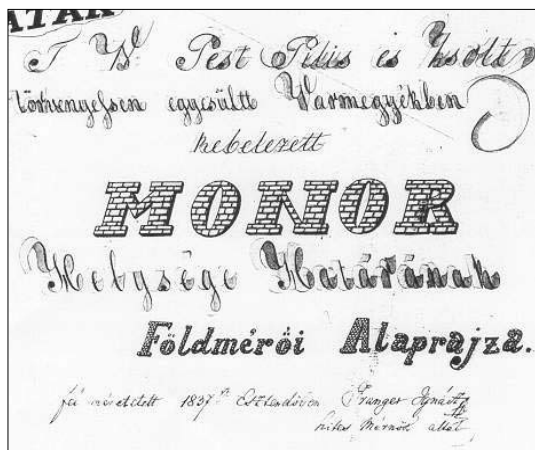 ATÁR
T. W. Pest Pilis és Zsolt
törvenyessen egyesültt Varmegyékben
kebelezett
MONOR
Helysége Határának
Földmérői Alaprajza.
fel méretetett 1837 Esztendőven Pranger Ignátz
hites Mérnök altal